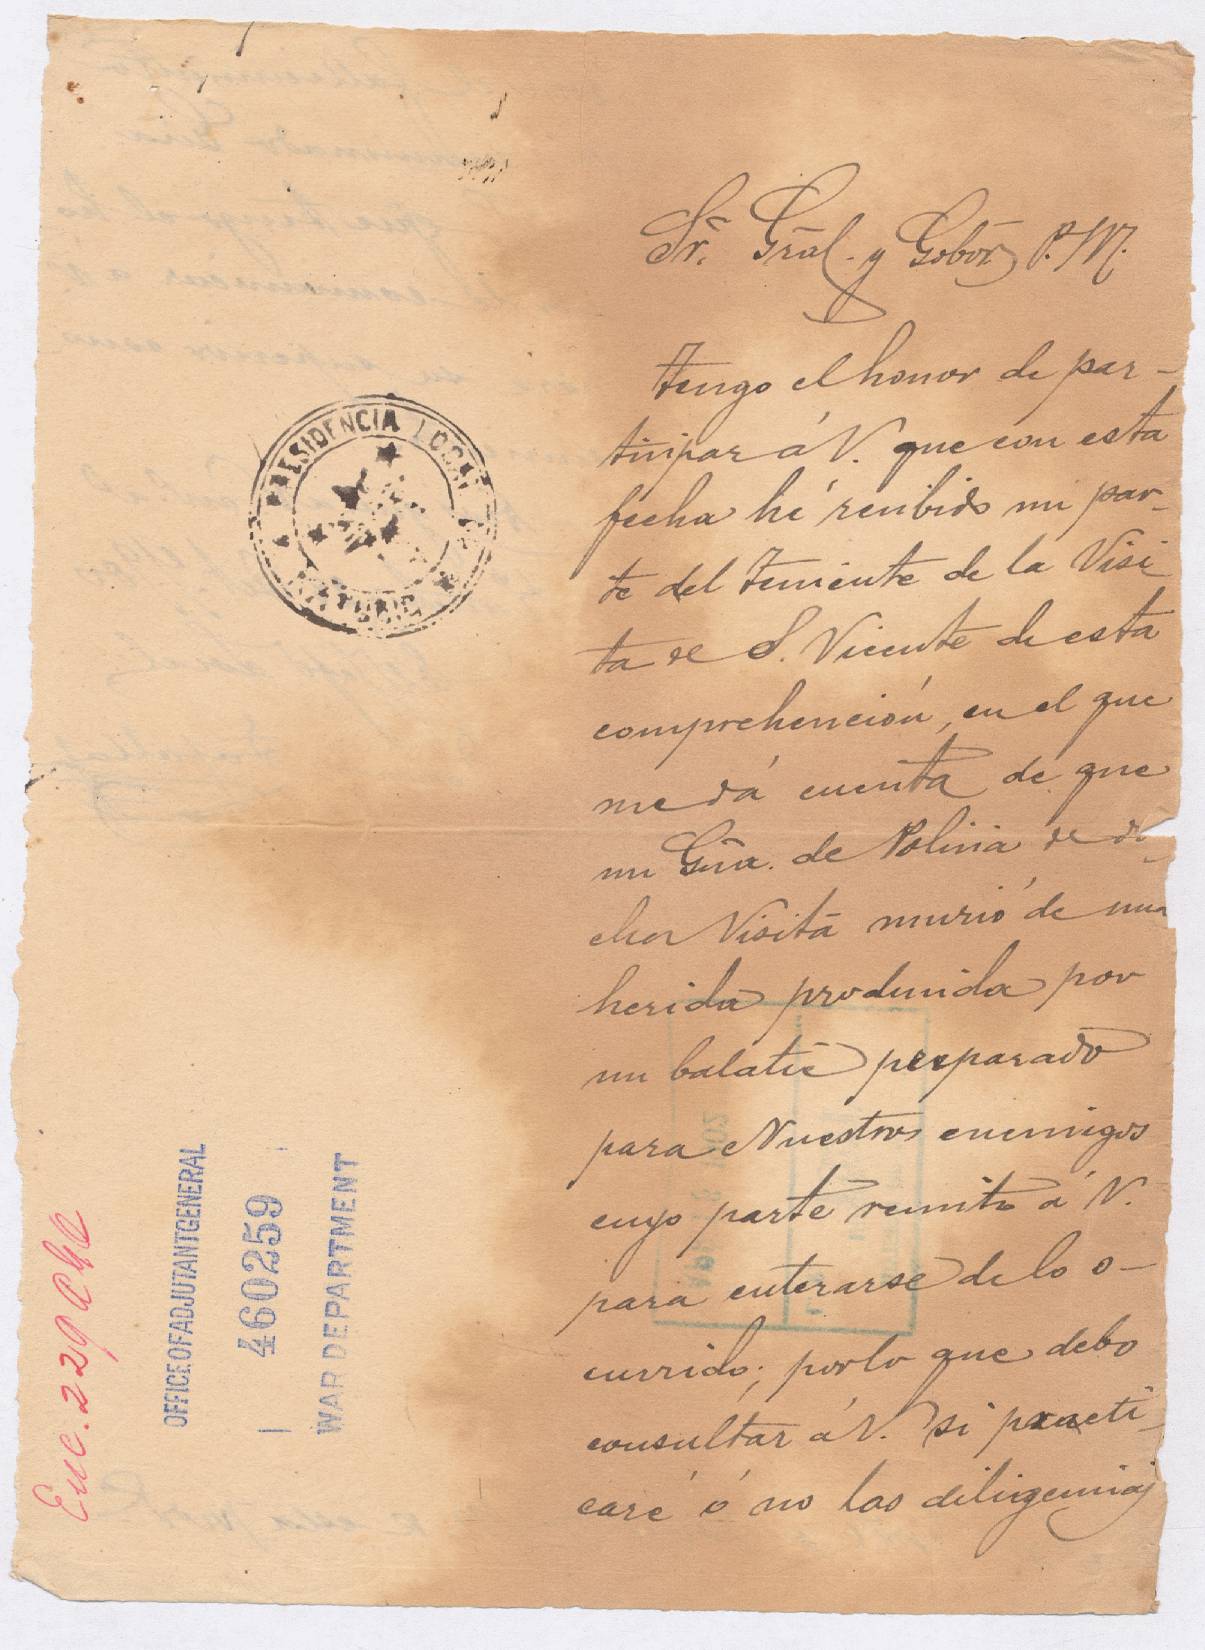 Sr. Gral. y Gobór. P. M.
Tengo el honor de par-
ticipar á V. que con esta
fecha hé recibido un par-
te del Teniente de la Visi
ta de S. Vicente de esta
comprehención, en el que
me dá cuenta de que
un Gúa. de Policia de di-
cha Visita murió de una
herida producida por
un balatic preparado
para Nuestros enemigos
cuyo parte remito á V.
para enterarse de lo o-
currido; por lo que debo
consultar á V. si practi-
caré ó no las diligencias
PRESIDENCIA LOCAL
OFFICE OF ADJUTANT GENERAL
460259
WAR DEPARTMENT
Enc. 229